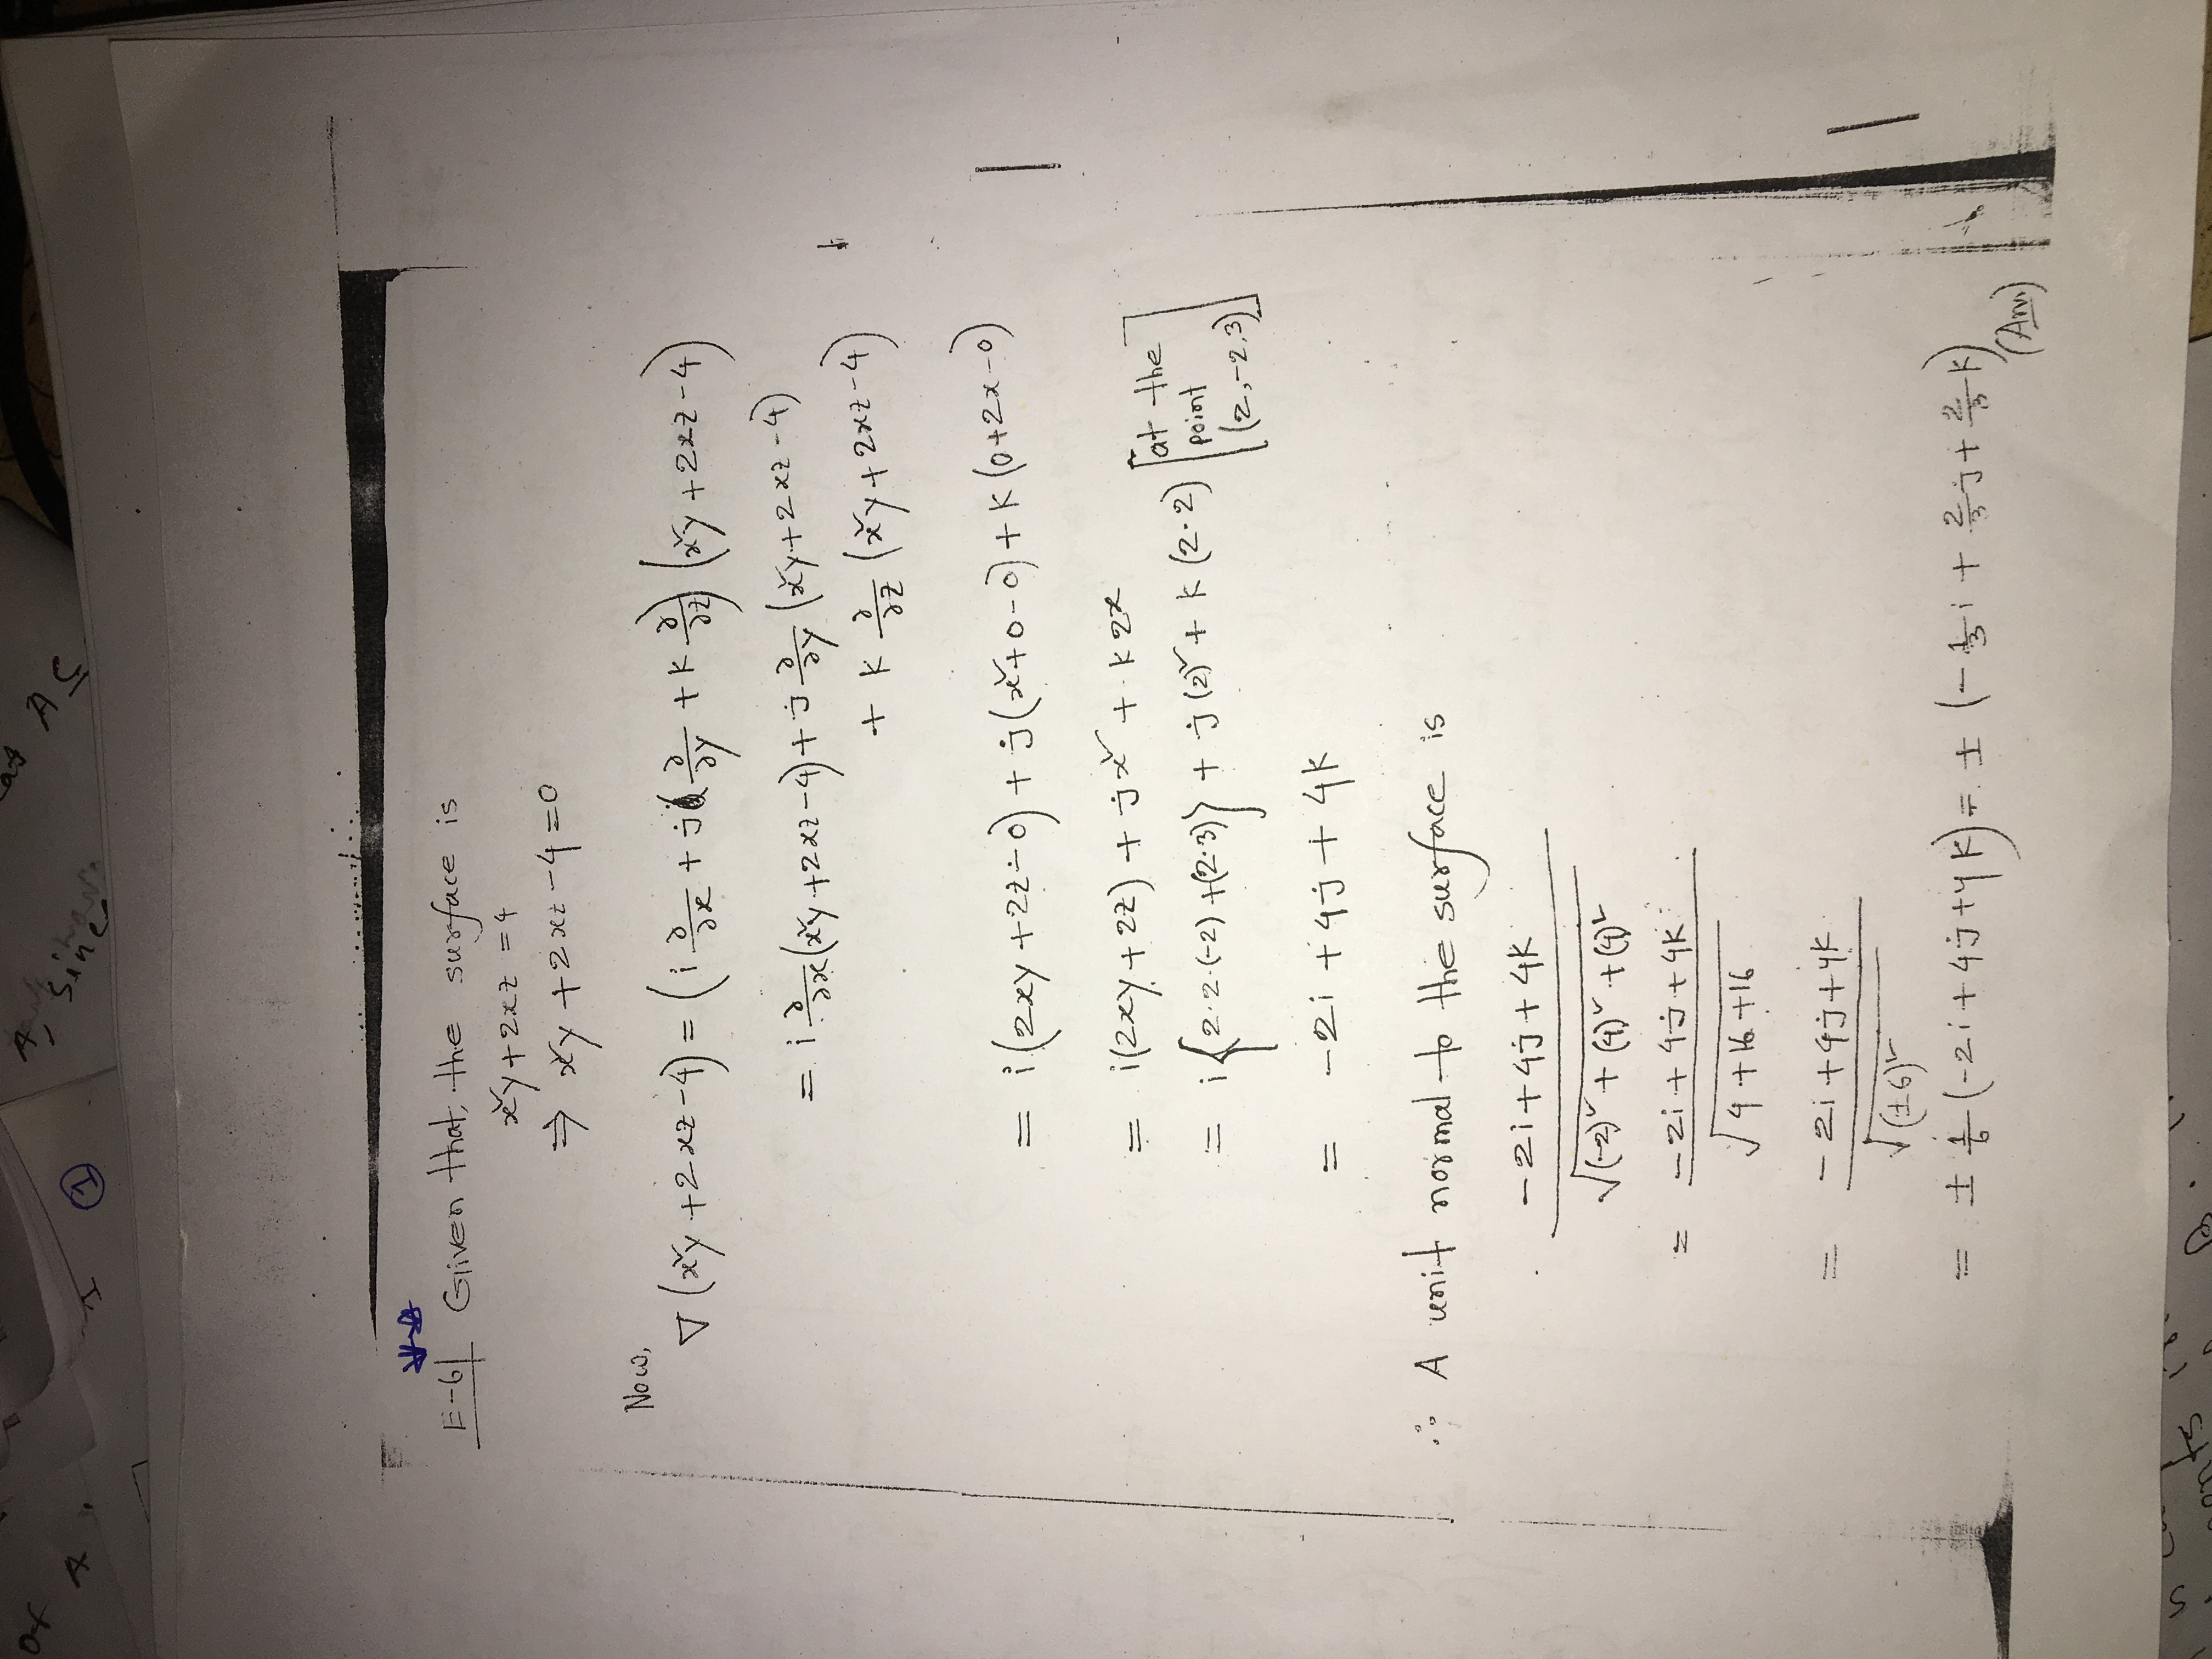 of
A.
I
①
A,
Since
at AC
E-6| Given that, the surface is
x²y + 2xz = 4
⇒ x²y + 2xz - 4 = 0
Now,
∇ (x²y + 2xz - 4) = (i ∂/∂x + j ∂/∂y + k ∂/∂z) (x²y + 2xz - 4)
= i ∂/∂x (x²y + 2xz - 4) + j ∂/∂y (x²y + 2xz - 4)
+ k ∂/∂z (x²y + 2xz - 4)
= i (2xy + 2z - 0) + j (x² + 0 - 0) + k (0 + 2x - 0)
= i(2xy + 2z) + j x² + k 2x
= i {2·2·(-2) + (2·3)} + j (2)² + k (2·2) [at the point (2, -2, 3)]
= -2i + 4j + 4k
∴ A unit normal to the surface is
(-2i + 4j + 4k) / √((-2)² + (4)² + (4)²)
= (-2i + 4j + 4k) / √(4 + 16 + 16)
= (-2i + 4j + 4k) / √((±6)²)
= ± 1/6 (-2i + 4j + 4k) = ± (-1/3 i + 2/3 j + 2/3 k)
(Ans)